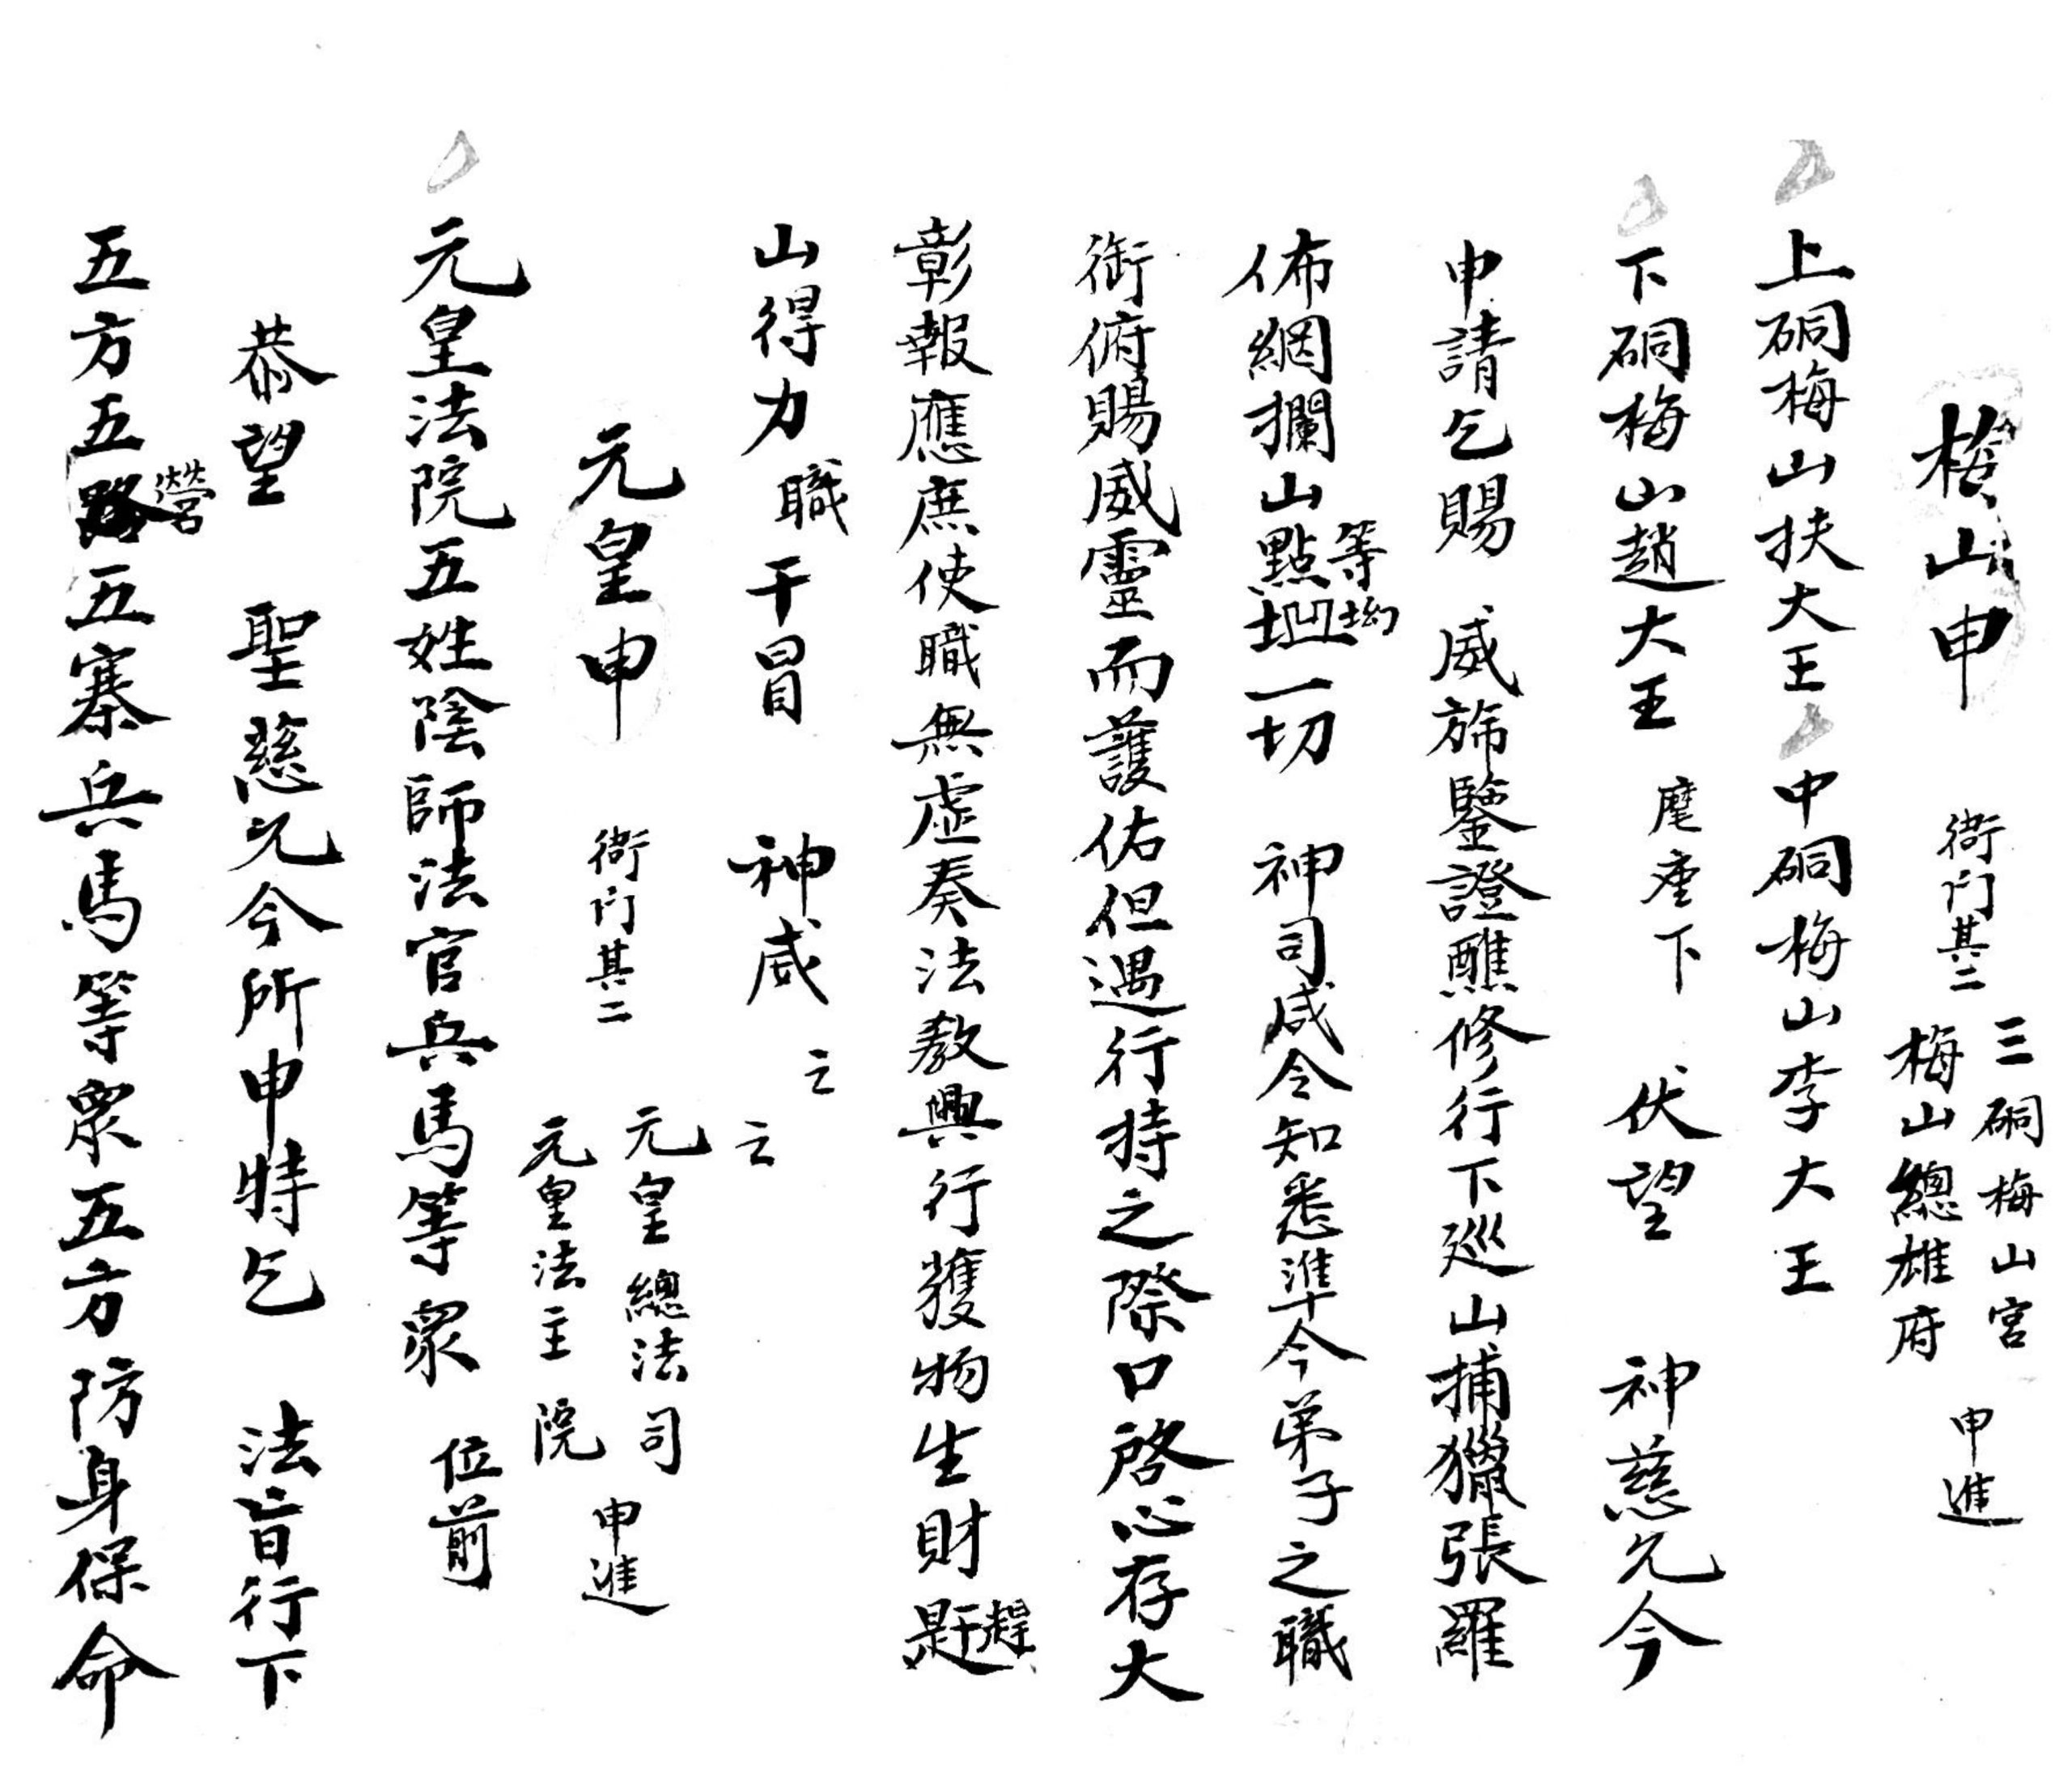 梅山申 衙門其二 三硐梅山宮 梅山總雄府 申進
上硐梅山扶大王 中硐梅山李大王
下硐梅山趙大王 麾座下 伏望 神慈允今
申請乞賜 威旆鑒證醮修行下巡山捕獵張羅
佈網攔山點等坳一切 神司咸令知悉準今弟子之職
銜俯賜威靈而護佑但遇行持之際口啓心存大
彰報應庶使職無虛奏法教興行獲物生財趕
山得力職干冒 神威 云云
元皇申 衙門其二 元皇總法司 元皇法主院 申進
元皇法院五姓陰師法官兵馬等眾 位前
恭望 聖慈允今所申特乞 法旨行下
五方五營五寨兵馬等眾五方防身保命